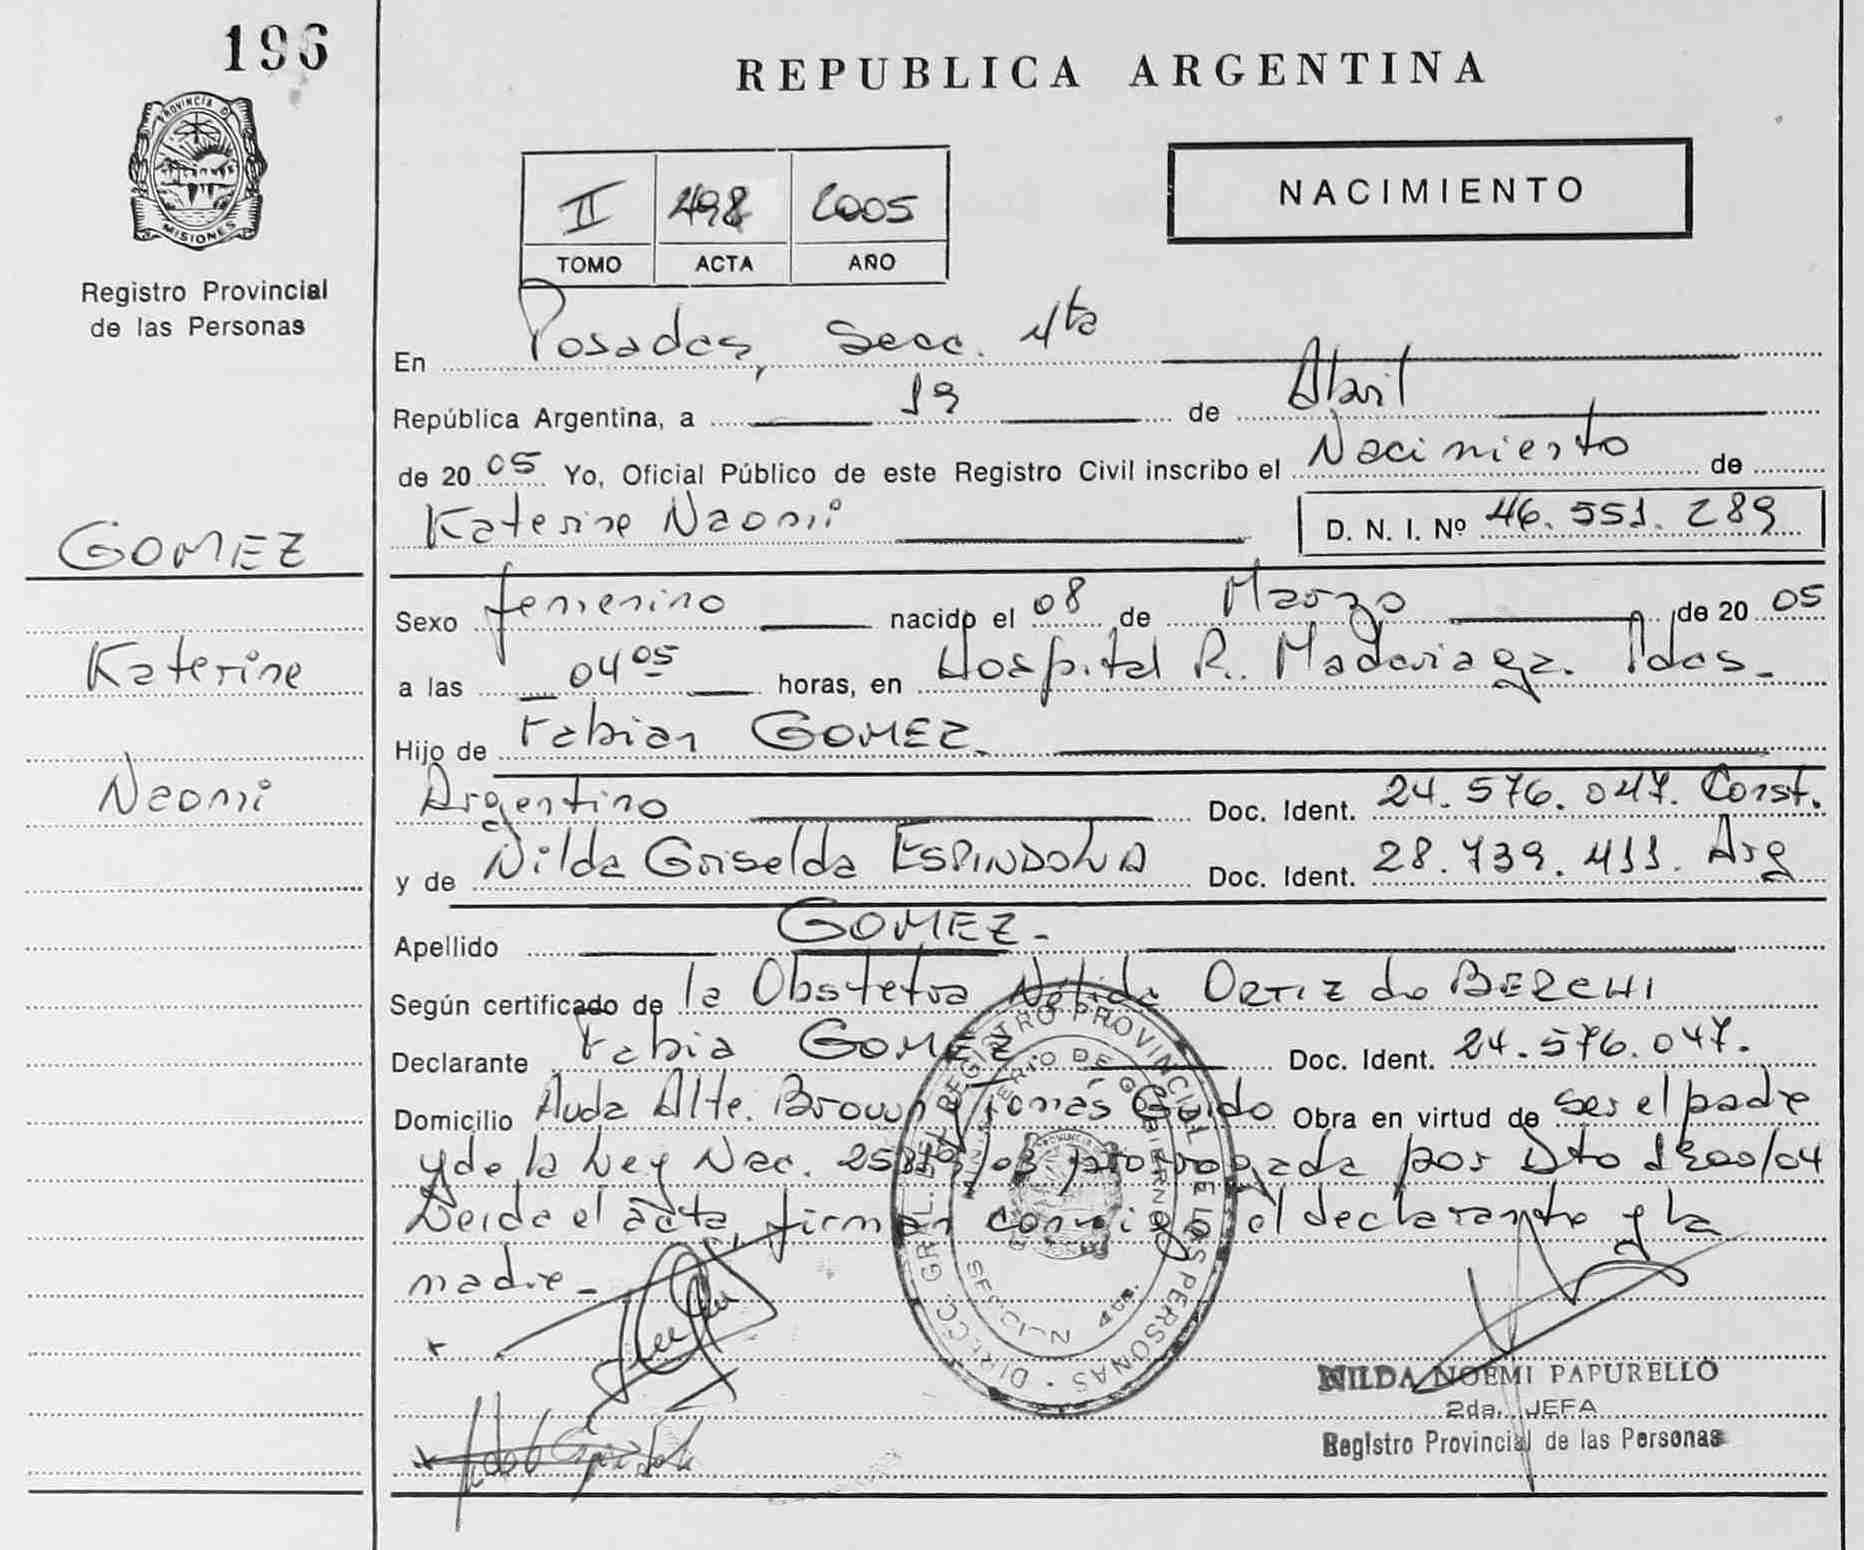 196
REPUBLICA ARGENTINA
PROVINCIA DE
MISIONES
Registro Provincial
de las Personas
NACIMIENTO
II 498 2005
TOMO ACTA AÑO
En Posadas, Secc. 4ta
República Argentina, a 19 de Abril
de 20 05 Yo, Oficial Público de este Registro Civil inscribo el Nacimiento de
Katerine Naomi D. N. I. Nº 46.551.289
GOMEZ
Katerine
Naomi
Sexo femenino nacido el 08 de Marzo de 20 05
a las 04 05 horas, en Hospital R. Madariaga. Pdas_
Hijo de Fabian GOMEZ
Argentino Doc. Ident. 24.576.047. Const.
y de Nilda Griselda ESPINDOLA Doc. Ident. 28.739.411. Arg
Apellido GOMEZ.-
Según certificado de la Obstetra Nélida ORTIZ de BERCHI
Declarante Fabia GOMEZ Doc. Ident. 24.576.047.
Domicilio Avda Alte. Brown y Tomás Guido Obra en virtud de ser el padre
y de la Ley Nac. 25819/03 prorrogada por Dto 1200/04
Leída el acta, firman conmigo el declarante y la
madre_
DIRECC. GRAL. DEL REGISTRO PROVINCIAL DE LAS PERSONAS
MINISTERIO DE GOBIERNO
SECCION 4ta.
NILDA NOEMI PAPURELLO
2da. JEFA
Registro Provincial de las Personas